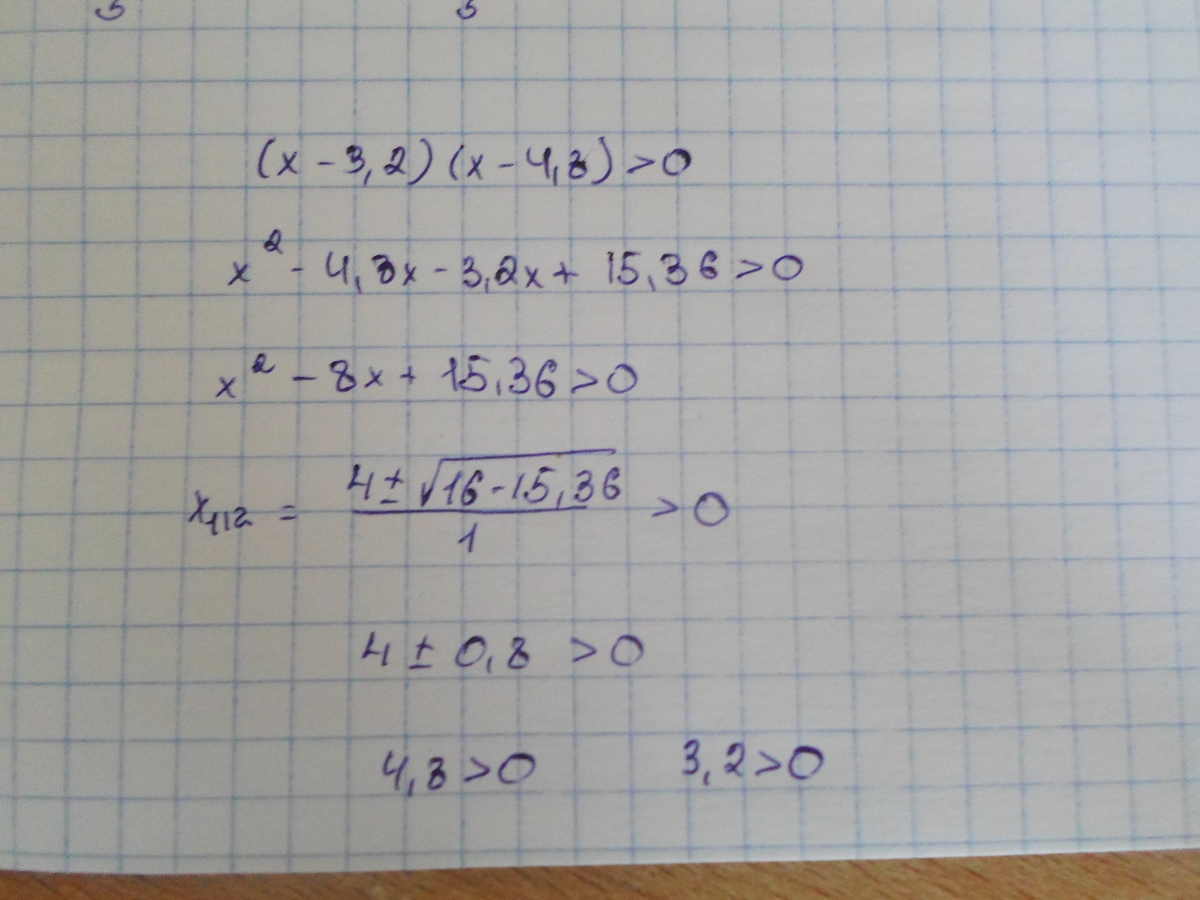 (x - 3,2) (x - 4,8) > 0
x² - 4,8x - 3,2x + 15,36 > 0
x² - 8x + 15,36 > 0
x₁,₂ = (4 ± √(16 - 15,36))/1 > 0
4 ± 0,8 > 0
4,8 > 0 3,2 > 0